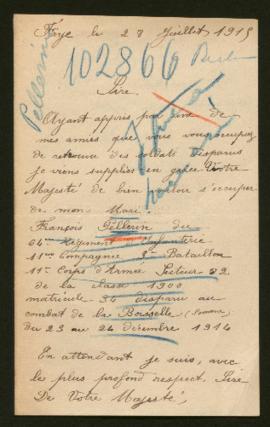 le 27 Juillet 1915
Pellerin
102866
Sire,
Ayant appris par une de
mes amies que vous vous occupez
de retrouver des soldats disparus
je viens supplier en grâce Votre
Majesté de bien vouloir s'occuper
de mon Mari.
François Pellerin du
64e Régiment Infanterie
11me Compagnie 3e Bataillon
11e Corps d'Armée Secteur 82
de la classe 1900
matricule 34 disparu au
combat de la Boisselle (Somme)
du 23 au 24 décembre 1914
En attendant je suis, avec
le plus profond respect, Sire
De Votre Majesté,